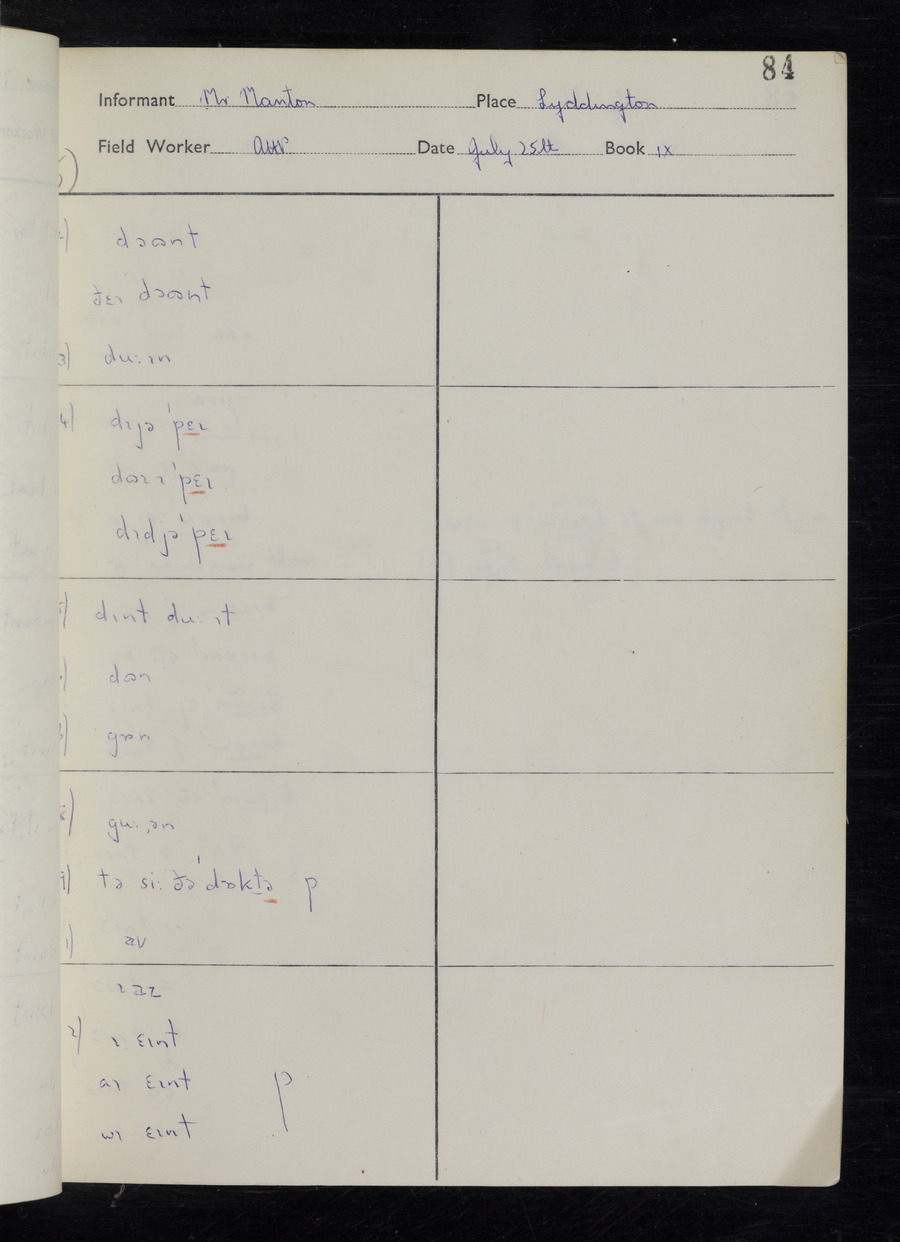 84
Informant Mr Manton Place Lyddington
Field Worker Date July 25th Book IX
5)
2) dɔʊnt
ðɛɪ dɔʊnt
3) duːɪn
4) dɪjə ˈpɛɪ
ˈpɛɪ
dɪdjə ˈpɛɪ
5) dɪnt duː ɪt
dʊn
gɒn
8) guːən
9) tə siː ðə ˈdɒktə p
1) av
ɪ az
2) ɪ ɛɪnt
aɪ ɛɪnt p
wɪ ɛɪnt